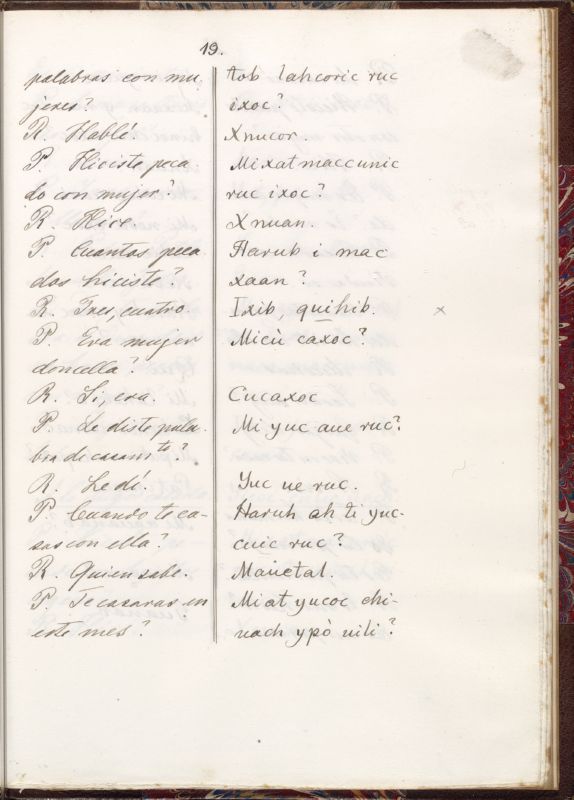 19.
palabras con mu
jeres?
R. Hablé.
P. Hiciste peca
do con mujer?
R. Hice.
P. Cuantos peca
dos hiciste?
R. Tres, cuatro.
P. Era mujer
doncella?
R. Si, era.
P. Le diste pala-
bra de casamto?
R. Le dí.
P. Cuando te ca-
sas con ella?
R. Quien sabe.
P. Te casaras en
este mes?
tob lahcoric ruc
ixoc?
Xnucor.
Mixat maccunic
ruc ixoc?
Xnuan.
Harub i mac
xaan?
Ixib, quihib.
x
Micù caxoc?
Cucaxoc
Mi yuc aue ruc?
Yuc ue ruc.
Haruh ah ti yuc-
cuic ruc?
Mauetal.
Miat yucoc chi-
uach ypò uili?